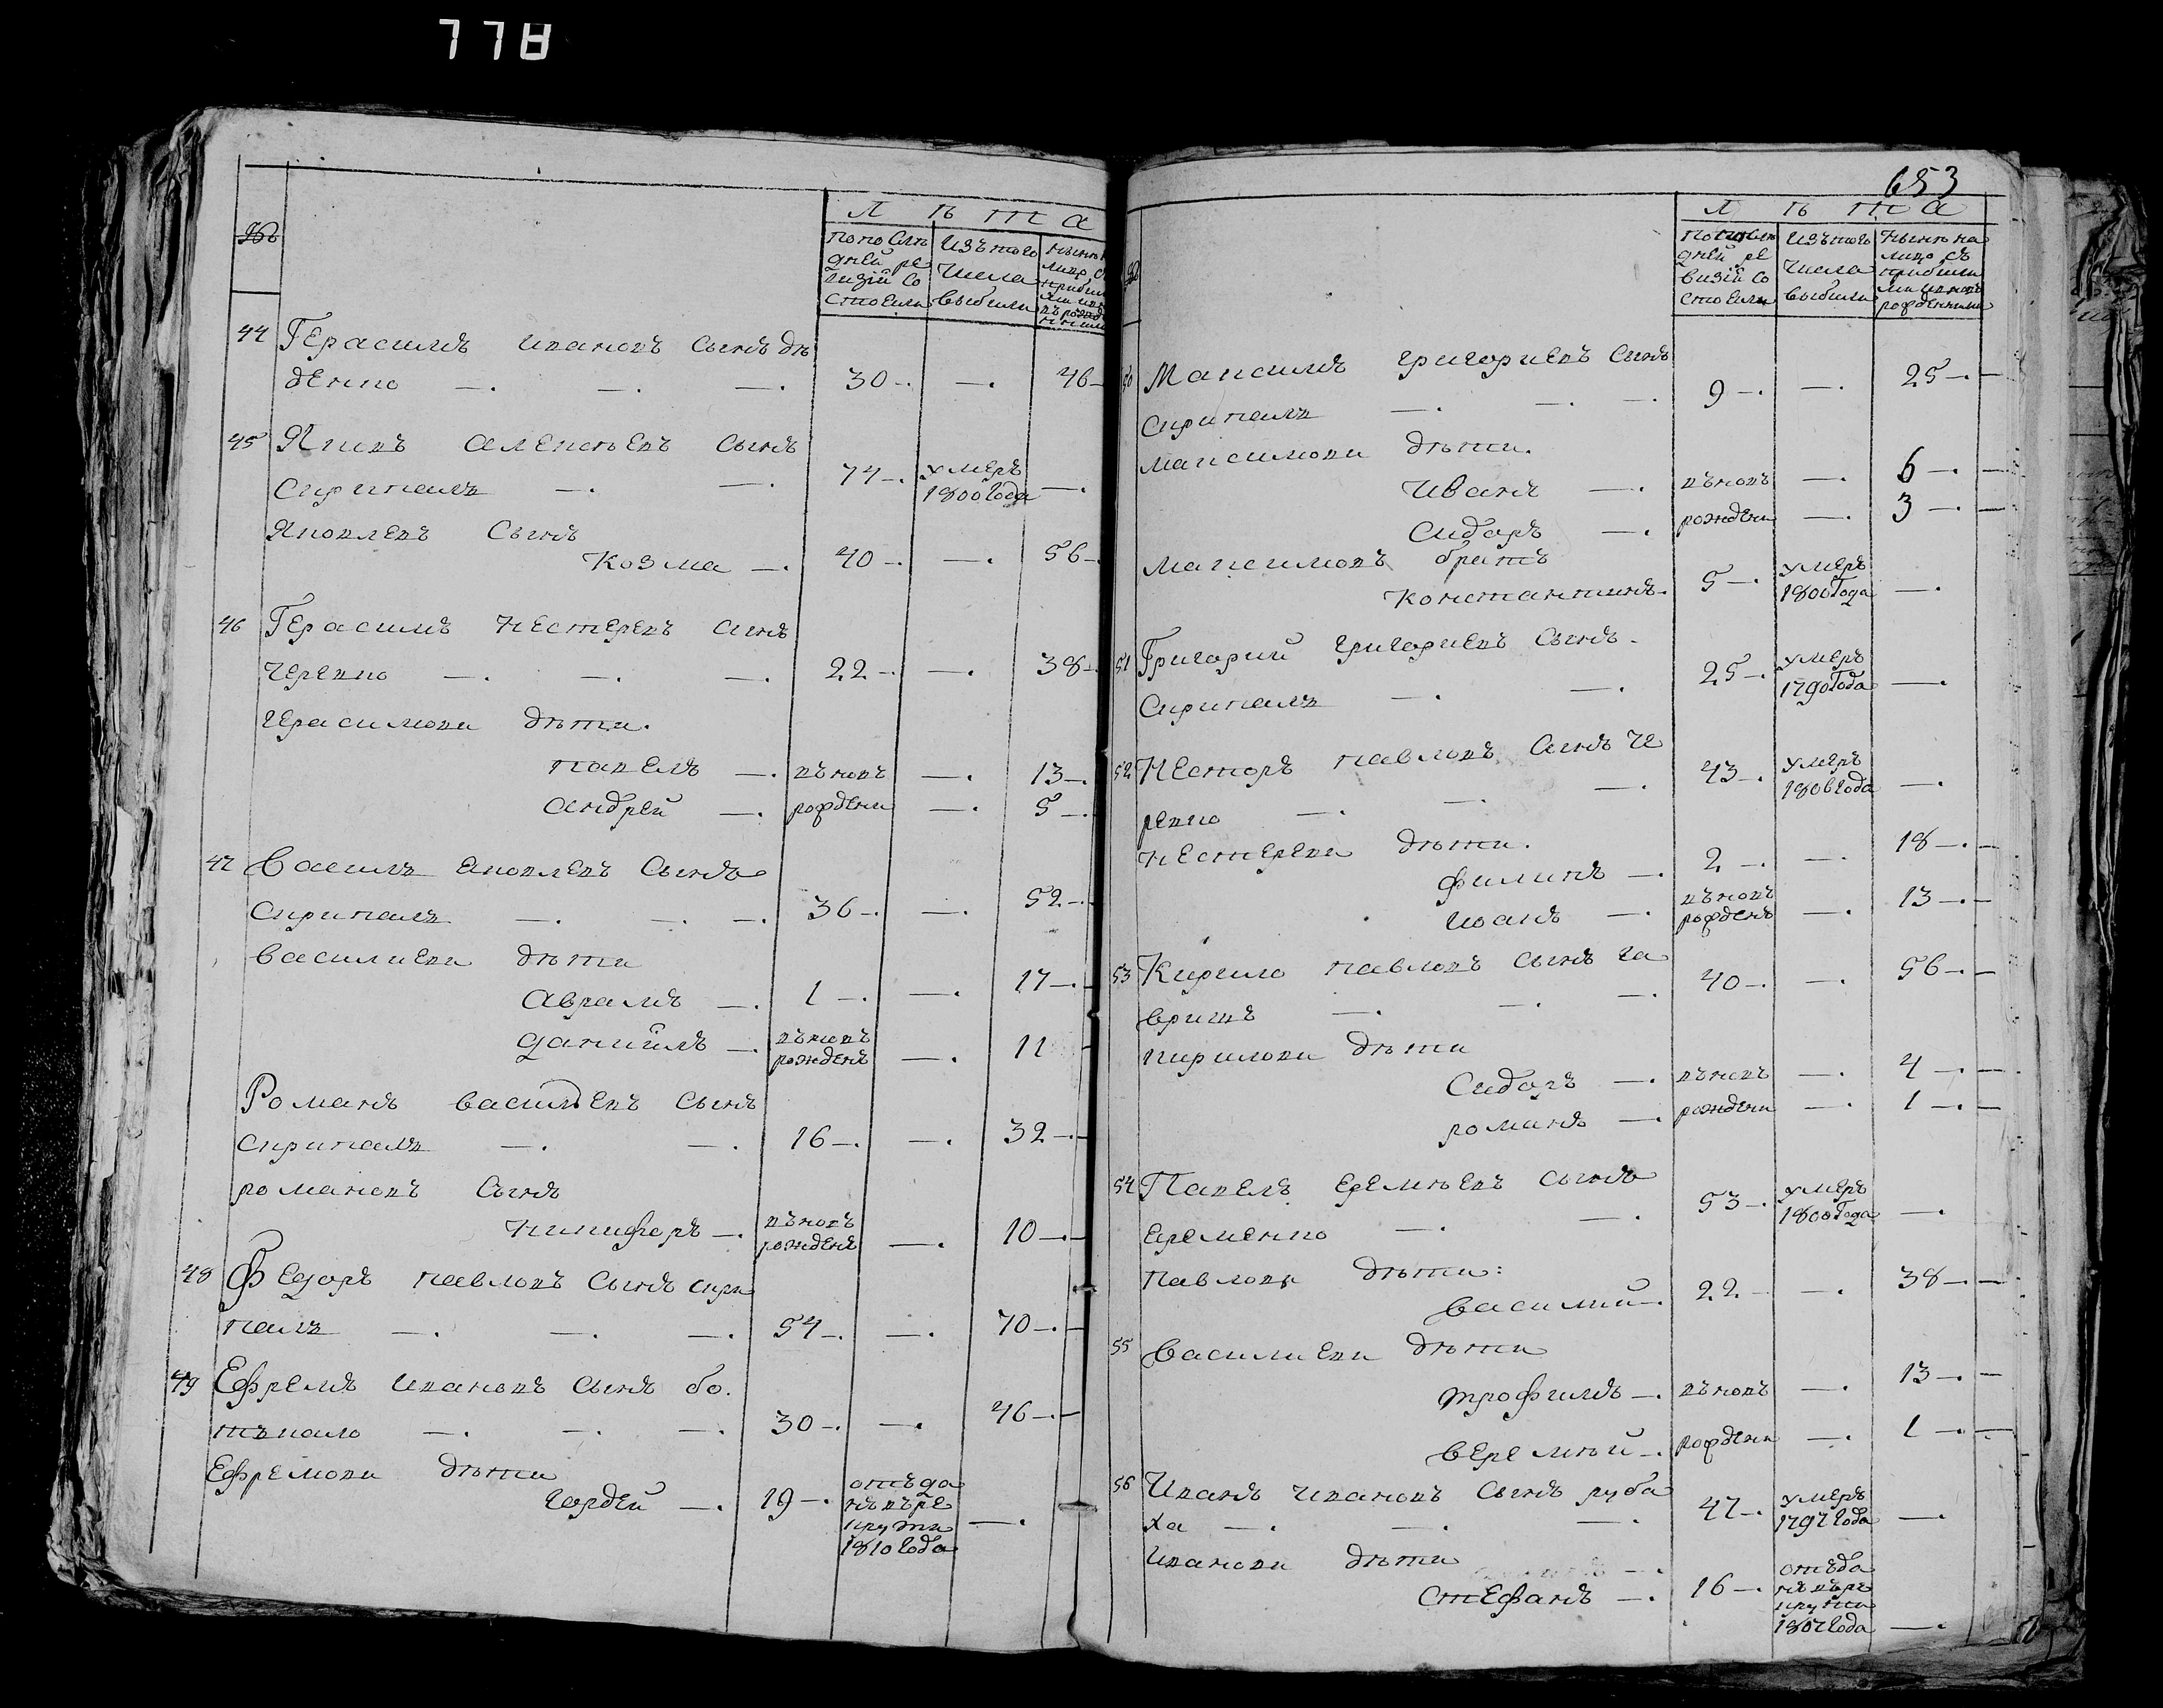 778
№
Л ѣ т а
попослѣ изътого нынѣ н
дней ре числа лицо с
визіи со выбыли прибыл
стоели
44 Герасимъ ивановъ сынъ дѣ
денко —. —. —. 30 —. —. 46 —
45 Яковъ алексѣевъ сынъ
скрипаль —. —. 74 —. умеръ —.
1800 года
Яковлевъ сынъ
Козма —. 40 —. —. 56 —.
46 Герасимъ нестеревъ сынъ
черевко —. —. —. 22 —. —. 38 —.
герасимови дѣти.
павелъ —. въновъ —. 13 —.
андрей —. рождени —. 5 —.
47 василь яковлевъ сынъ
скрипаль —. —. —. 36 —. —. 52 —.
василиеви дѣти
аврамъ —. 1 —. —. 17 —.
даниилъ —. въновъ —. 11
рожденъ
Романъ василіевъ сынъ
скрипаль —. —. 16 —. —. 32 —.
романовъ сынъ
никифоръ —. въновъ —. 10 —.
рожденъ
48 Федоръ павловъ сынъ скри
паль —. —. —. 54 —. —. 70 —.
49 Ефремъ ивановъ сынъ бо.
тъкало —. —. —. 30 —. —. 46 —.
Ефремови дѣти
гордей —. 19 —. отъда —.
нъ въре
крути
1810 года
653
Л ѣ т а
попослѣ изътого нынѣ на
дней ре числа лицо съ
визіи со выбыли прибыли
стоели ми ивновъ
рожденними
50 Максимъ григориевъ сынъ
скрипаль —. —. —. 9 —. —. 25 —.
максимови дѣти.
Иванъ —. въновъ —. 6 —.
Сидоръ —. рождени —. 3 —.
максимовъ братъ
константинъ. 5 —. умеръ —.
1800 года
51 Григорий григориевъ сынъ
скрипаль —. —. 25 —. умеръ —.
1790 года
52 Несторъ павловъ сынъ че
ревко —. —. —. 43 —. умеръ —.
1806 года
нестереви дѣти.
филипъ —. 2 —. —. 18 —.
иванъ —. въновъ —. 13 —.
рожденъ
53 Кирило павловъ сынъ га
вришъ —. —. —. 40 —. —. 56 —.
кирилови дѣти
Сидоръ —. въновъ —. 4 —.
романъ —. рождени —. 1 —.
54 Павелъ еремѣевъ сынъ
еременко —. —. 53 —. умеръ —.
1800 года
павлови дѣти:
василий —. 22 —. —. 38 —.
55 василиеви дѣти
трофимъ —. въновъ —. 13 —.
веремѣй —. рождени —. 1 —.
56 Иванъ ивановъ сынъ руба
ха —. —. —. 47 —. умеръ —.
1797 года
Иванови дѣти
стефанъ —. 16 —. отъда
нъ въре
крути
1807 года —.